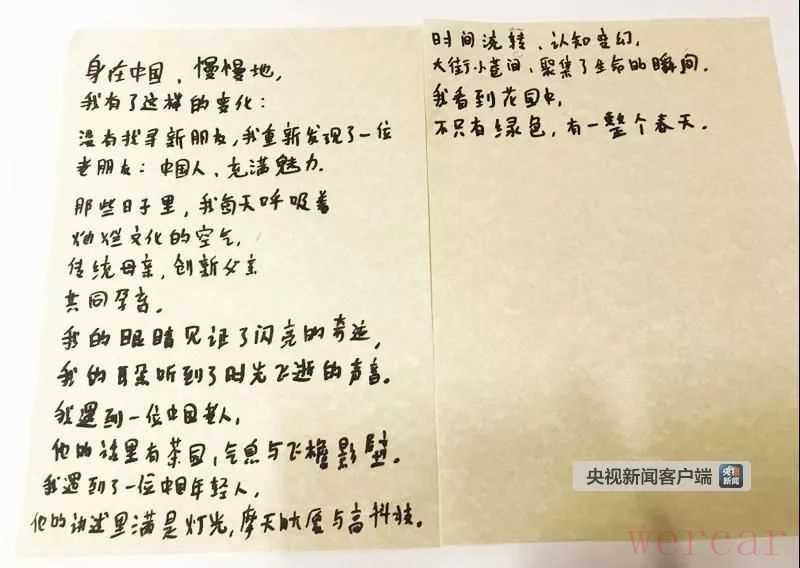 身在中国，慢慢地，
我有了这样的变化：
没有找寻新朋友，我重新发现了一位
老朋友：中国人、充满魅力.
那些日子里，我每天呼吸着
灿烂文化的空气，
传统母亲，创新父亲
共同孕育。
我的眼睛见证了闪亮的奇迹，
我的耳朵听到了时光飞逝的声音。
我遇到一位中国老人，
他的话里有茶园，气息与飞檐影壁。
我遇到了一位中国年轻人，
他的讲述里满是灯光，摩天大厦与高科技。
时间流转、认知变幻，
大街小巷间、聚集了生命的瞬间.
我看到花园中，
不只有绿色，有一整个春天.
央视新闻客户端
央视
新闻
wercar